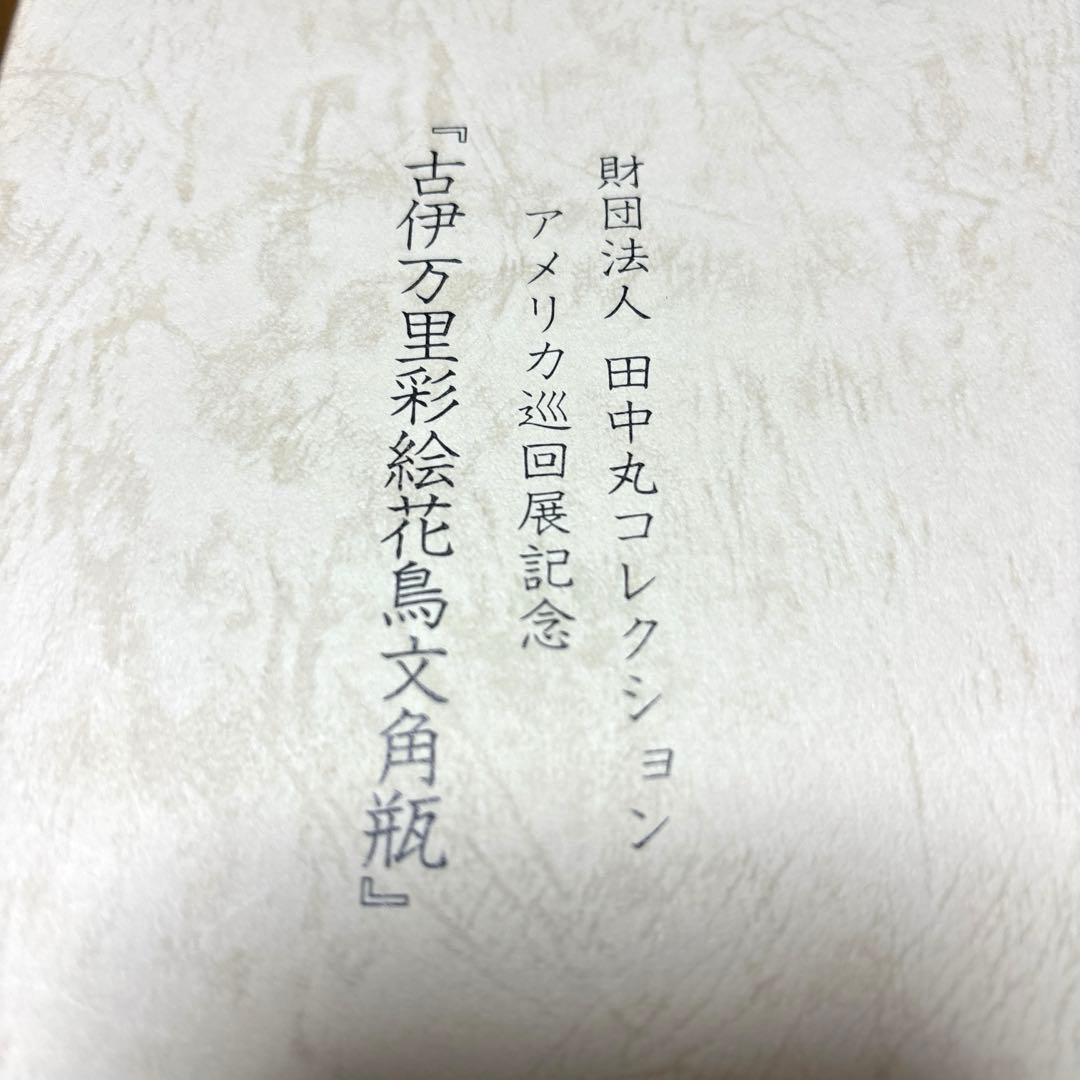 財団法人 田中丸コレクション
アメリカ巡回展記念
『古伊万里彩絵花鳥文角瓶』